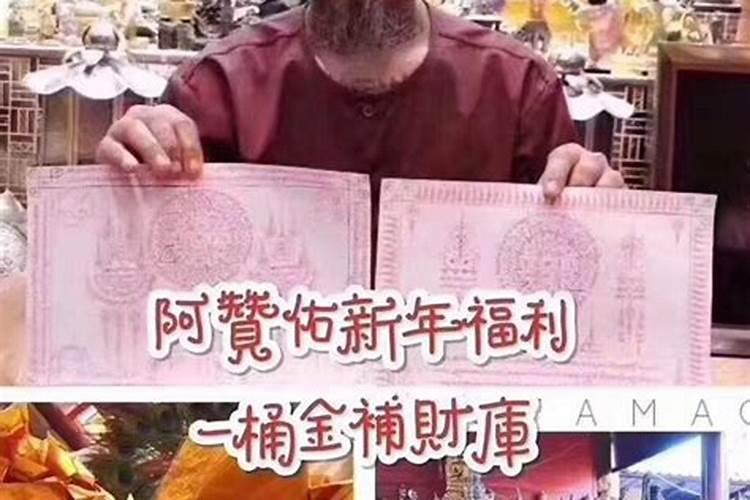 阿贊佑新年福利
一桶金補財庫
AMAG